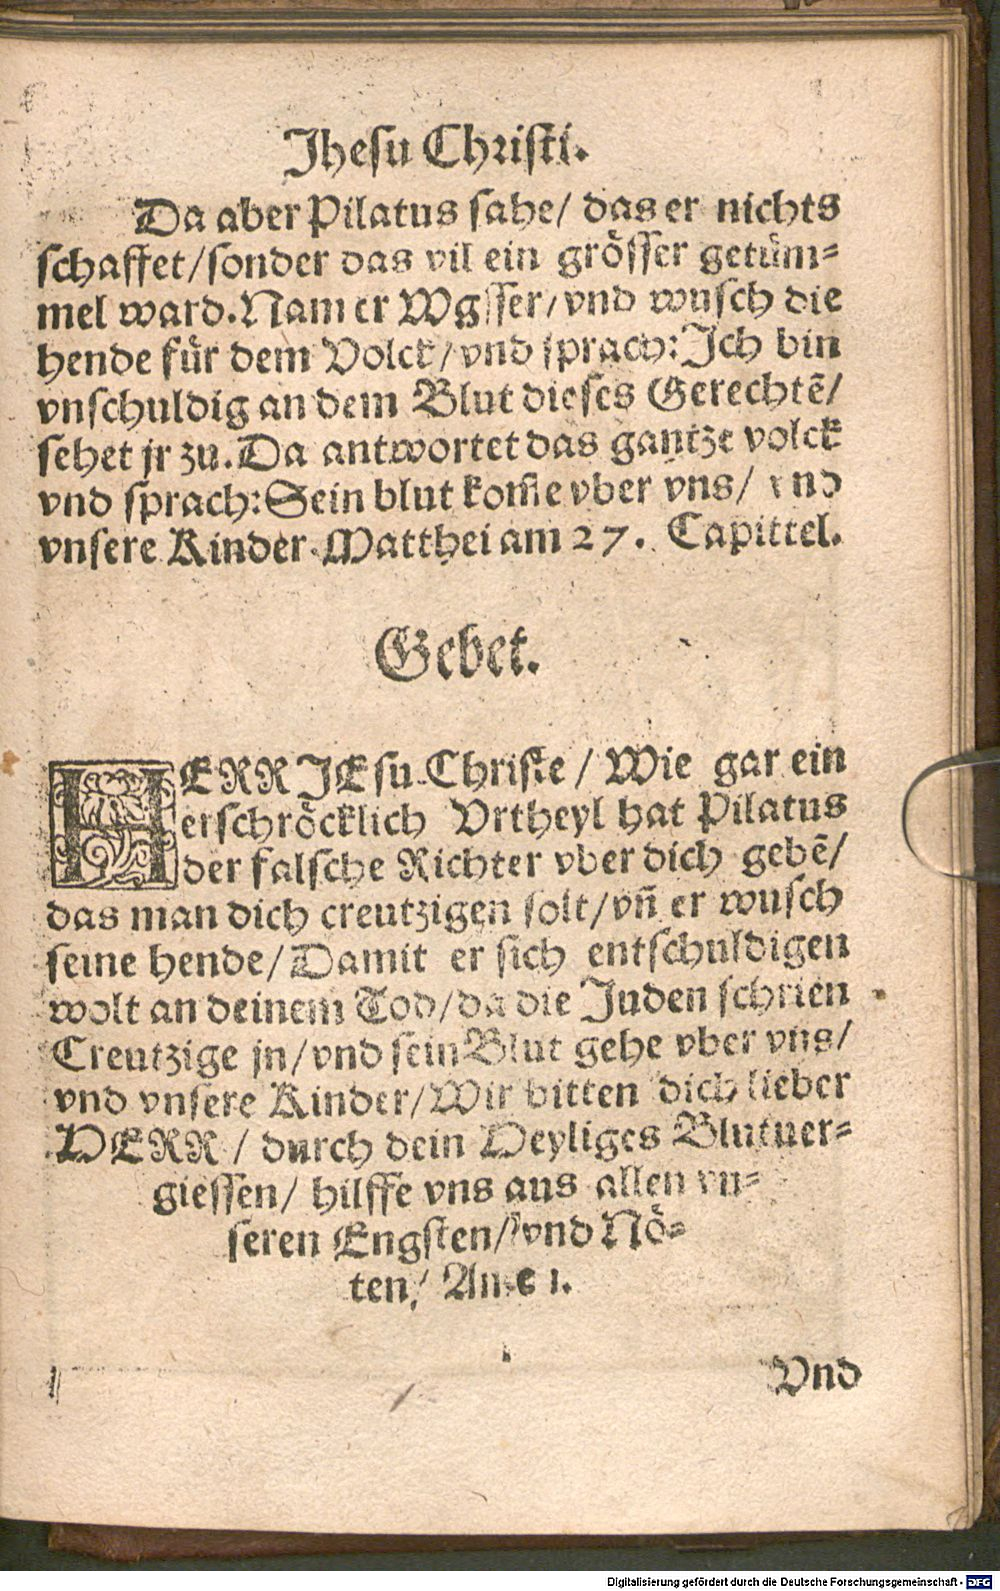 Jhesu Christi.
Da aber Pilatus sahe/ das er nichts
schaffet/sonder das vil ein grösser getüm⸗
mel ward.Nam er Wasser/vnd wusch die
hende für dem Volck/vnd sprach:Ich bin
vnschuldig an dem Blut dieses Gerechtē/
sehet jr zu.Da antwortet das gantze volck
vnd sprach:Sein blut kom̄e vber vns/ vnd
vnsere Kinder.Matthei am 27. Capittel.
Gebet.
HERR JEsu Christe/ Wie gar ein
erschröcklich Vrtheyl hat Pilatus
der falsche Richter vber dich gebē/
das man dich creutzigen solt/vn̄ er wusch
seine hende/Damit er sich entschuldigen
wolt an deinem Tod/da die Juden schrien
Creutzige jn/vnd sein Blut gehe vber vns/
vnd vnsere Kinder/Wir bitten dich lieber
HERR/ durch dein Heyliges Blutuer⸗
giessen/ hilffe vns aus allen vn⸗
seren Engsten/vnd Nö⸗
ten/ Amen.
Vnd
Digitalisierung gefördert durch die Deutsche Forschungsgemeinschaft - DFG